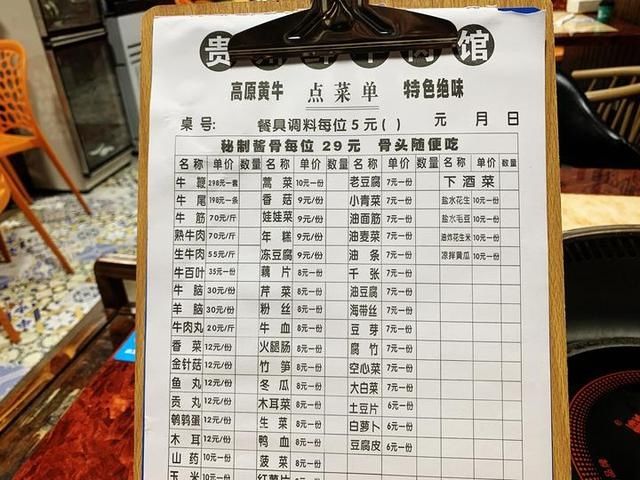 贵 馆
高原黄牛 点菜单 特色绝味
桌号: 餐具调料每位5元( ) 元 月 日
秘制酱骨每位29元 骨头随便吃
名称 单价 数量 名称 单价 数量 名称 单价 数量 名称 单价 数量
牛鞭 298元一套 蒿菜 10元一份 老豆腐 7元一份 下酒菜
牛尾 198元一条 香菇 9元/份 小青菜 7元一份 盐水花生 10元一份
牛筋 70元/斤 娃娃菜 9元/份 油面筋 7元一份 盐水毛豆 10元一份
熟牛肉 70元/斤 年糕 9元/份 油麦菜 7元一份 油炸花生米 10元一份
生牛肉 55元/斤 冻豆腐 9元/份 油条 7元一份 凉拌黄瓜 10元一份
牛百叶 35元一份 藕片 8元一份 千张 7元一份
牛脑 30元/份 芹菜 8元一份 油豆腐 7元一份
羊脑 30元/份 粉丝 8元一份 海带丝 7元一份
牛肉丸 20元/斤 牛血 8元一份 豆芽 7元一份
香菜 12元/份 火腿肠 8元一份 腐竹 7元一份
金针菇 12元/份 竹笋 8元一份 空心菜 7元一份
鱼丸 12元/份 冬瓜 8元一份 大白菜 7元一份
贡丸 12元/份 木耳菜 8元一份 土豆片 6元一份
鹌鹑蛋 12元/份 生菜 8元一份 白萝卜 6元一份
木耳 12元/份 鸭血 8元一份 豆腐皮 6元一份
山药 10元一份 菠菜 8元一份
玉米 10元一份 8元一份